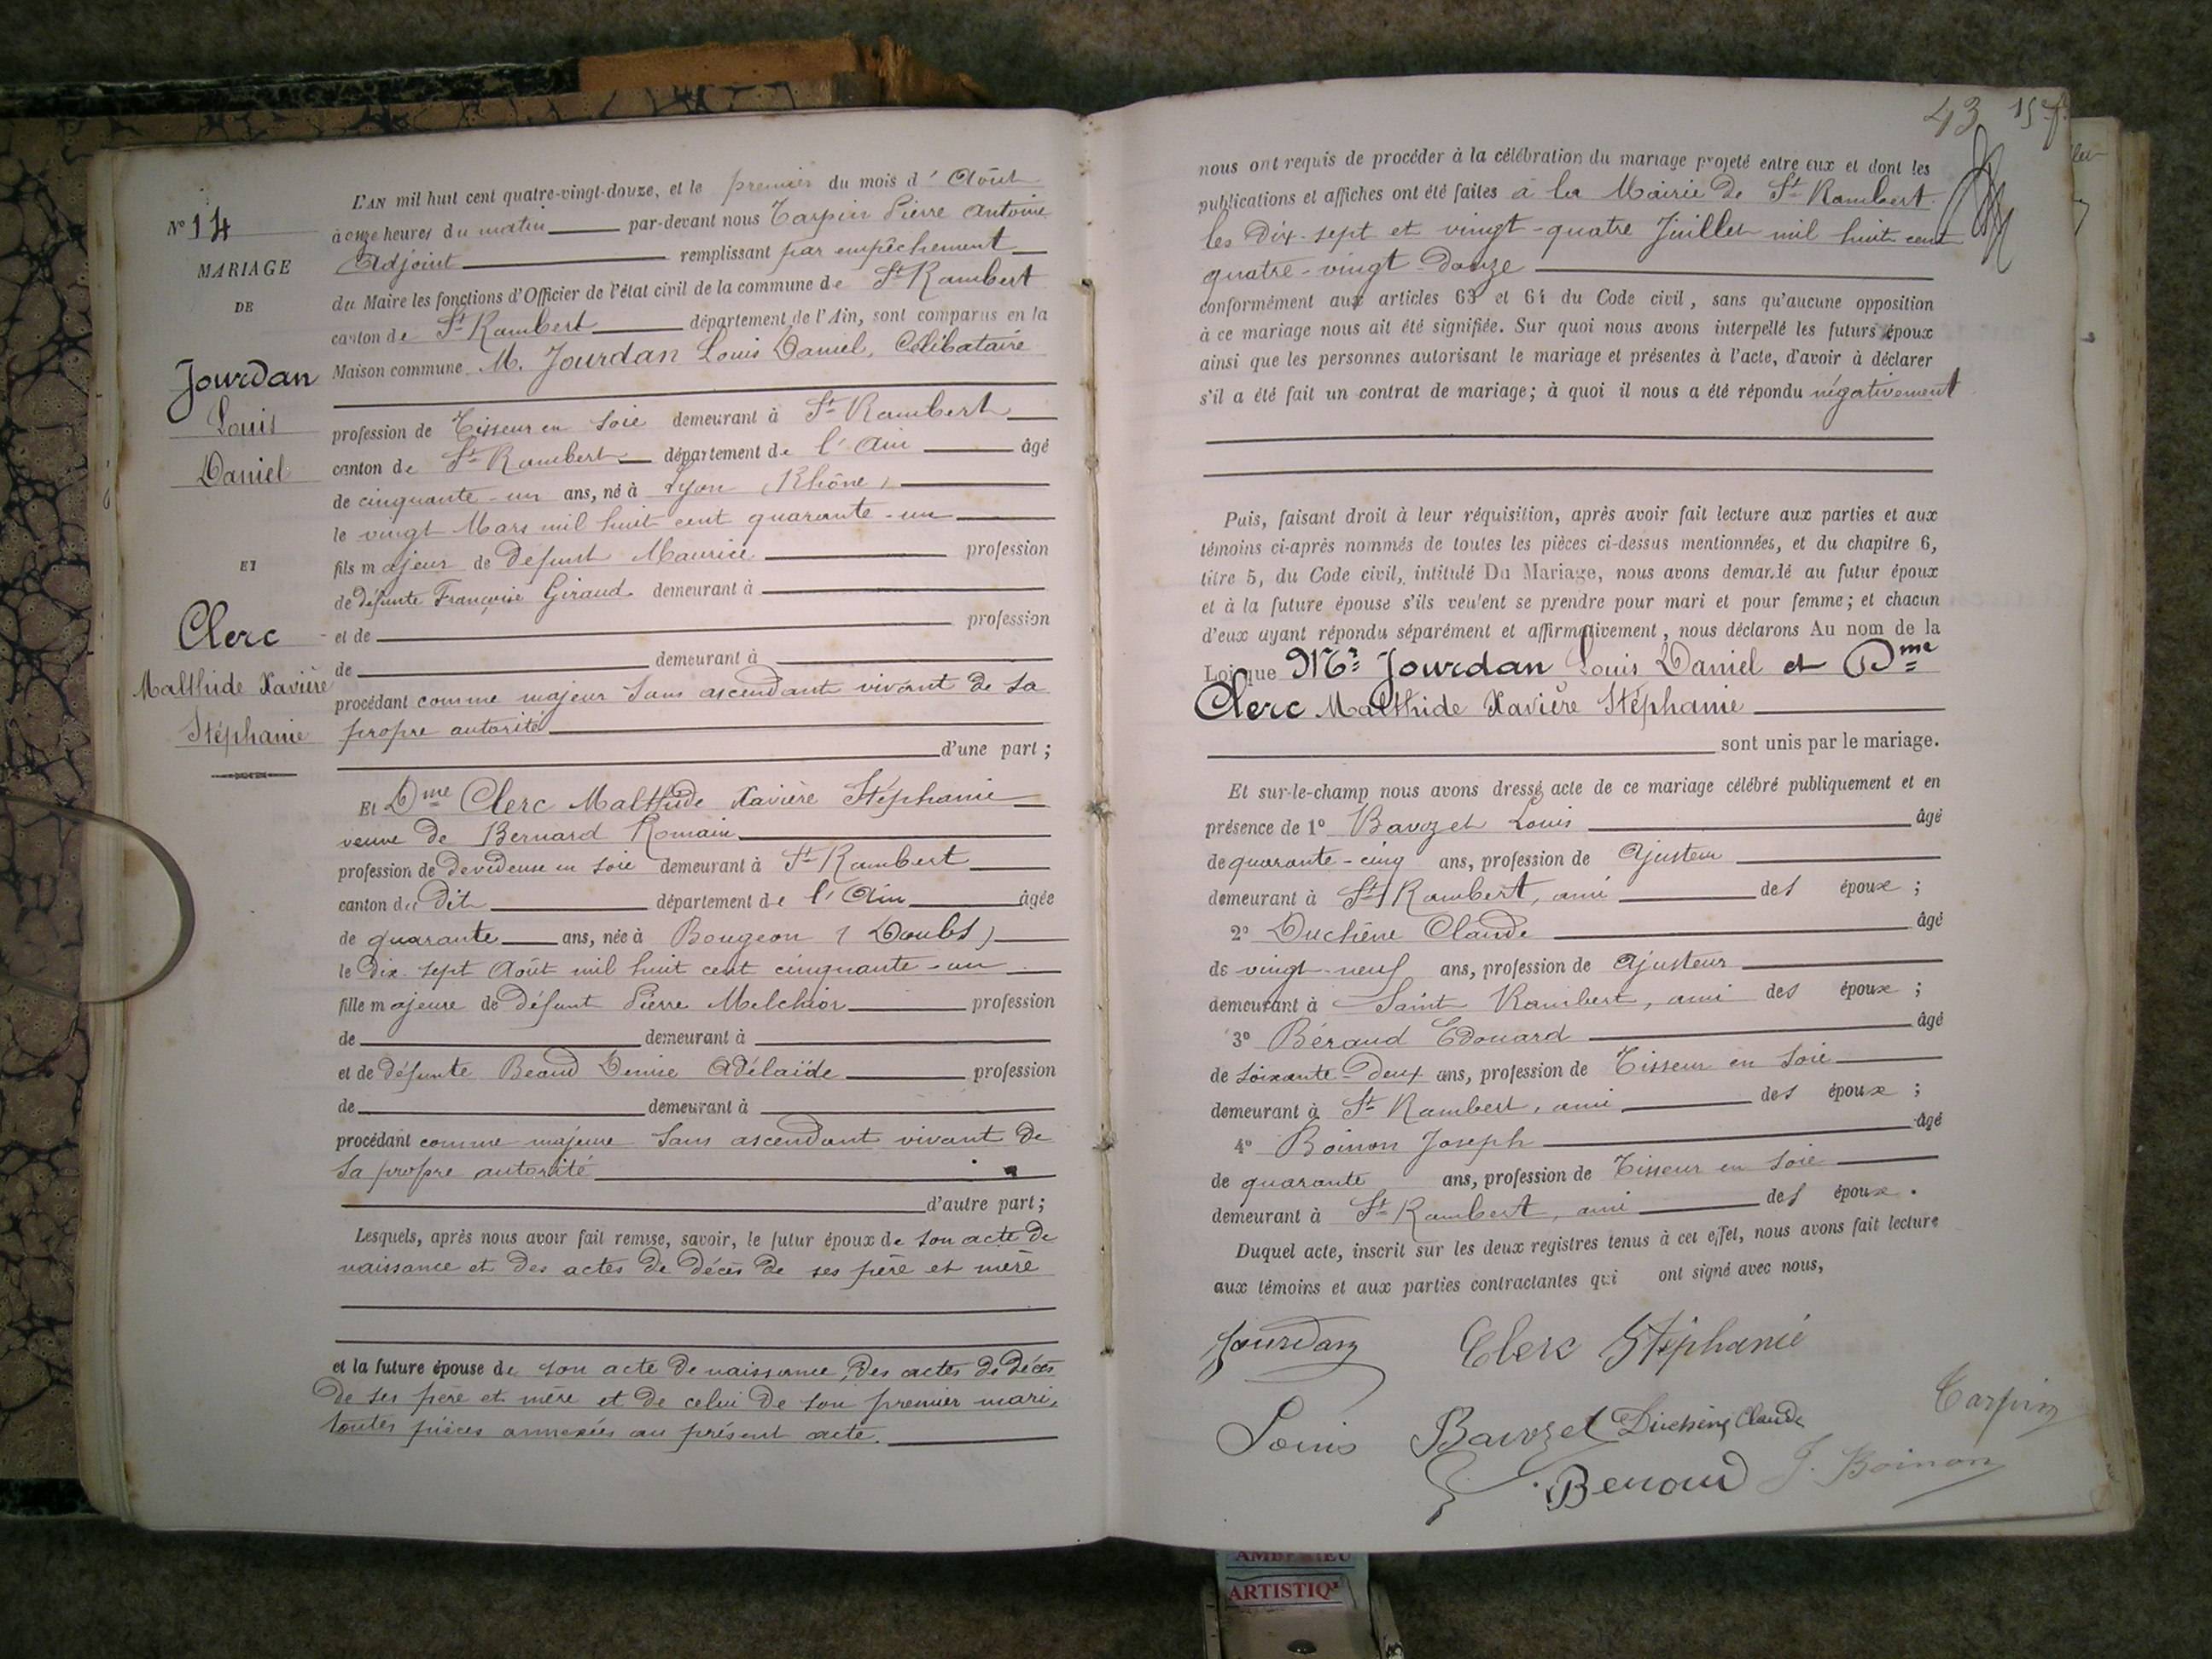 N° 14
MARIAGE
DE
Jourdan
Louis
Daniel
ET
Clerc
Malthide Xavière
Stéphanie
L'AN mil huit cent quatre-vingt-douze, et le premier du mois d'Août
à onze heures du matin par-devant nous Tarpin Pierre Antoine
Adjoint remplissant par empêchement
du Maire les fonctions d'Officier de l'état civil de la commune de St Rambert
canton de St Rambert département de l'Ain, sont comparus en la
Maison commune M. Jourdan Louis Daniel, Célibataire
profession de Tisseur en soie demeurant à St Rambert
canton de St Rambert département de l'Ain âgé
de cinquante-un ans, né à Lyon (Rhône)
le vingt Mars mil huit cent quarante-un
fils majeur de Défunt Maurice profession
de défunte Françoise Giraud demeurant à
et de profession
de demeurant à
procédant comme majeur sans ascendants vivant de sa
propre autorité
d'une part ;
Et Dme Clerc Malthide Xavière Stéphanie
veuve de Bernard Romain
profession de devideuse en soie demeurant à St Rambert
canton du dit département de l'Ain âgée
de quarante ans, née à Bougeon (Doubs)
le dix-sept Août mil huit cent cinquante-un
fille majeure de Défunt Pierre Melchior profession
de demeurant à
et de défunte Beaud Denise Adélaïde profession
de demeurant à
procédant comme majeure sans ascendant vivant de
sa propre autorité
d'autre part ;
Lesquels, après nous avoir fait remise, savoir, le futur époux de son acte de
naissance et des actes de décès de ses père et mère
et la future épouse de son acte de naissance, des actes de décès
de ses père et mère et de celui de son premier mari,
toutes pièces annexées au présent acte.
43 15e f.
nous ont requis de procéder à la célébration du mariage projeté entre eux et dont les
publications et affiches ont été faites à la Mairie de St Rambert
les Dix-sept et vingt-quatre Juillet mil huit cent
quatre-vingt-douze
conformément aux articles 63 et 64 du Code civil, sans qu'aucune opposition
à ce mariage nous ait été signifiée. Sur quoi nous avons interpellé les futurs époux
ainsi que les personnes autorisant le mariage et présentes à l'acte, d'avoir à déclarer
s'il a été fait un contrat de mariage ; à quoi il nous a été répondu négativement
Puis, faisant droit à leur réquisition, après avoir fait lecture aux parties et aux
témoins ci-après nommés de toutes les pièces ci-dessus mentionnées, et du chapitre 6,
titre 5, du Code civil, intitulé Du Mariage, nous avons demandé au futur époux
et à la future épouse s'ils veulent se prendre pour mari et pour femme ; et chacun
d'eux ayant répondu séparément et affirmativement, nous déclarons Au nom de la
Loi que Mr Jourdan Louis Daniel et Dme
Clerc Malthide Xavière Stéphanie
sont unis par le mariage.
Et sur-le-champ nous avons dressé acte de ce mariage célébré publiquement et en
présence de 1° Bavozet Louis âgé
de quarante-cinq ans, profession de Ajusteur
demeurant à St Rambert, ami des époux ;
2° Duchêne Claude âgé
de vingt-neuf ans, profession de Ajusteur
demeurant à Saint Rambert, ami des époux ;
3° Béraud Edouard âgé
de soixante-deux ans, profession de Tisseur en soie
demeurant à St Rambert, ami des époux ;
4° Boinon Joseph âgé
de quarante ans, profession de Tisseur en soie
demeurant à St Rambert, ami des époux.
Duquel acte, inscrit sur les deux registres tenus à cet effet, nous avons fait lecture
aux témoins et aux parties contractantes qui ont signé avec nous,
Jourdan Clerc Stéphanie
Louis Bavozet Duchêne Claude Tarpin
Beraud J. Boinon
AMBERIEU
ARTISTIQ